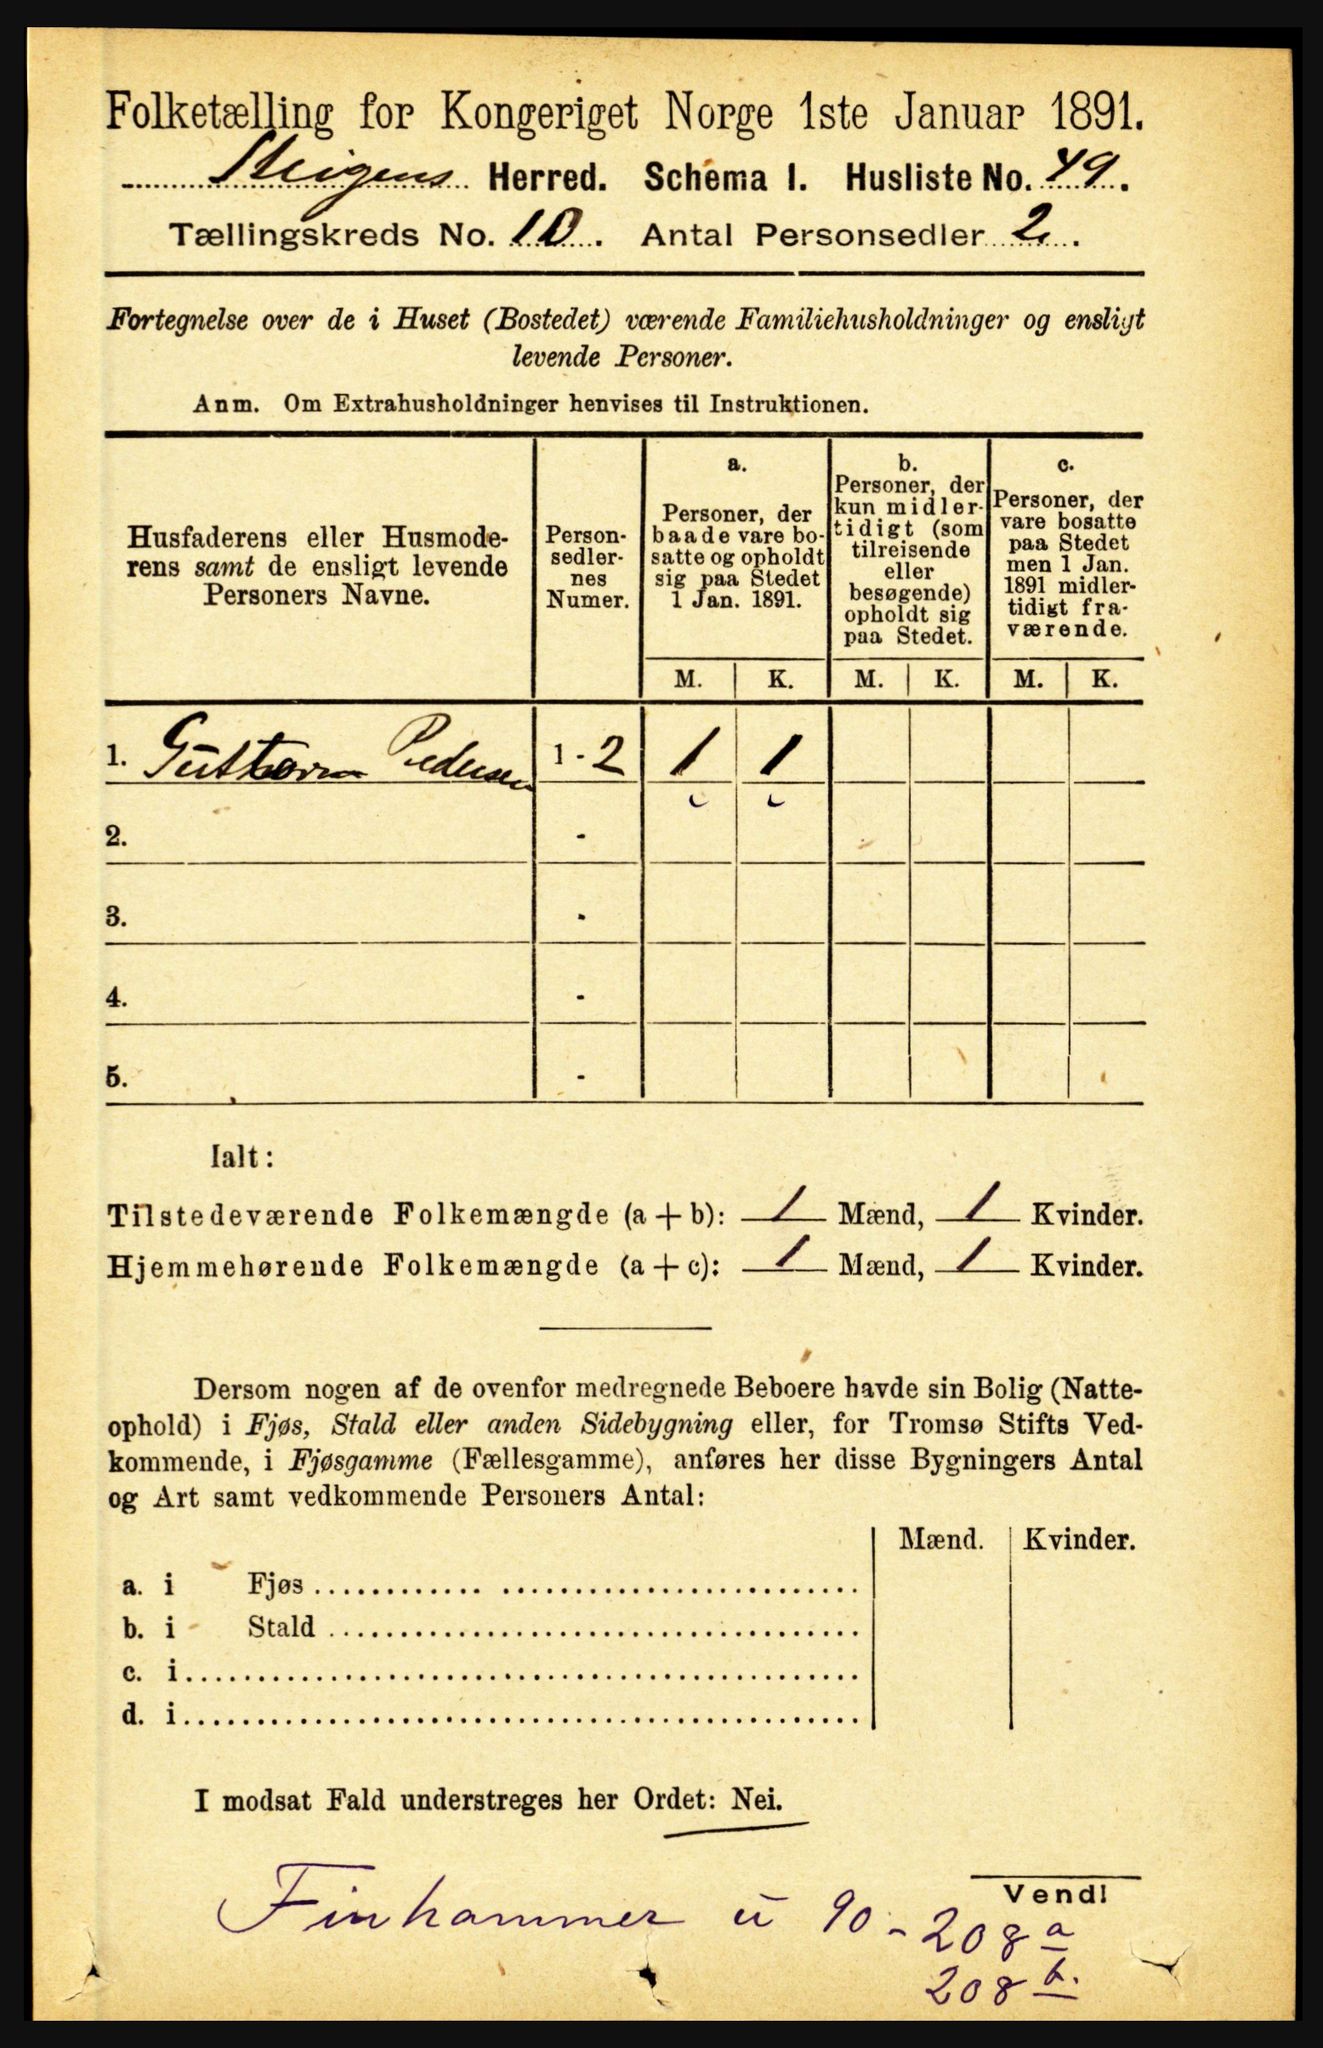 Folketælling for Kongeriget Norge 1ste Januar 1891.
Steigens Herred. Schema I. Husliste No. 49.
Tællingskreds No. 10. Antal Personsedler 2.
Fortegnelse over de i Huset (Bostedet) værende Familiehusholdninger og ensligt
levende Personer.
Anm. Om Extrahusholdninger henvises til Instruktionen.
Husfaderens eller Husmode-
rens samt de ensligt levende
Personers Navne.
Person-
sedler-
nes
Numer.
a.
Personer, der
baade vare bo-
satte og opholdt
sig paa Stedet
1 Jan. 1891.
b.
Personer, der
kun midler-
tidigt (som
tilreisende
eller
besøgende)
opholdt sig
paa Stedet.
c.
Personer, der
vare bosatte
paa Stedet
men 1 Jan.
1891 midler-
tidigt fra-
værende.
M. K. M. K. M. K.
1. Guttorm Pedersen 1 - 2 1 1
2. -
3. -
4. -
5. -
Ialt:
Tilstedeværende Folkemængde (a + b): 1 Mænd, 1 Kvinder.
Hjemmehørende Folkemængde (a + c): 1 Mænd, 1 Kvinder.
Dersom nogen af de ovenfor medregnede Beboere havde sin Bolig (Natte-
ophold) i Fjøs, Stald eller anden Sidebygning eller, for Tromsø Stifts Ved-
kommende, i Fjøsgamme (Fællesgamme), anføres her disse Bygningers Antal
og Art samt vedkommende Personers Antal:
Mænd. Kvinder.
a. i Fjøs
b. i Stald
c. i
d. i
I modsat Fald understreges her Ordet: Nei.
Vend!
Finhammer u 90 - 208 a
208 b.